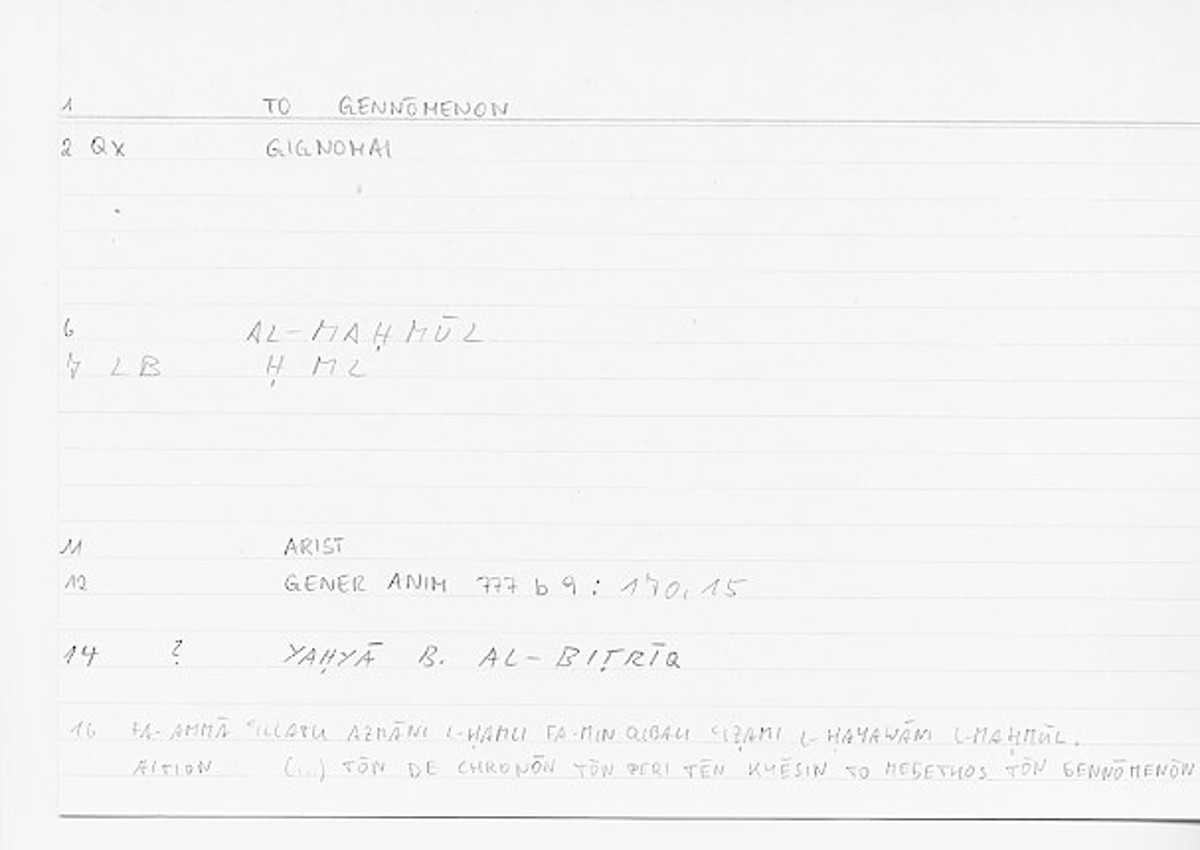 1 TO GENNŌMENON
2 QX GIGNOMAI
6 AL-MAḤMŪL
7 LB Ḥ ML
11 ARIST
12 GENER ANIM 777 b 9 : 170,15
14 ? YAḤYĀ B. AL-BIṬRĪQ
16 FA-AMMĀ ʿILLATU AZMĀNI L-ḤAMLI FA-MIN QIBALI ʿIẒAMI L-ḤAYAWĀNI L-MAḤMŪL.
AITION (...) TŌN DE CHRONŌN TŌN PERI TĒN KYĒSIN TO MEGETHOS TŌN GENNŌMENŌN